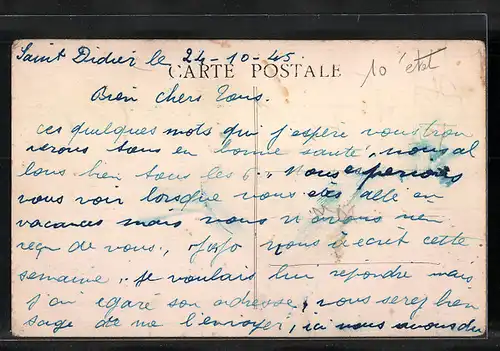 Saint Didier le 24-10-45
CARTE POSTALE
10 état
Bien chers Tous.
ces quelques mots qui j'espère vous trou
verons tous en bonne santé, nous al
lons bien tous les 6. Nous esperions
vous voir lorsque vous êtes allé en
vacances mais nous n'avons ne
reçu de vous, Jojo nous à ecrit cette
semaine, je voulais lui répondre mais
j'ai egaré son adresse, vous serez bien
sage de me l'envoyer, ici nous avons du